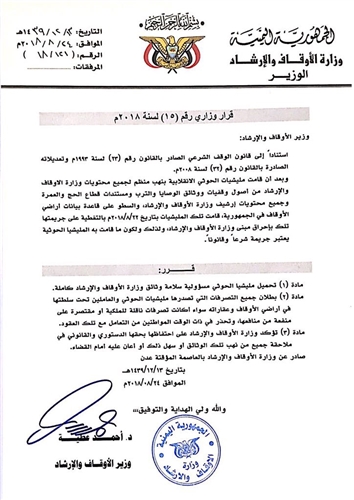 بسم الله الرحمن الرحيم
الجمهورية اليمنية
وزارة الأوقاف والإرشاد
الوزير
التاريخ: ١٤٣٩/١٢/١٣هـ
الموافق: ٢٠١٨/٨/٢٤م
الرقم: ( ١٨/١٢٦ )
المرفقات:
قرار وزاري رقم (١٥) لسنة ٢٠١٨م
وزير الأوقاف والإرشاد:
استناداً إلى قانون الوقف الشرعي الصادر بالقانون رقم (٢٣) لسنة ١٩٩٣م وتعديلاته
الصادرة بالقانون رقم (٣٢) لسنة ٢٠٠٨م.
وبعد أن قامت مليشيات الحوثي الانقلابية بنهب منظم لجميع محتويات وزارة الاوقاف
والإرشاد من أصول وقفيات ووثائق الوصايا والترب ومستندات قطاع الحج والعمرة
وجميع محتويات إرشيف وزارة الأوقاف والإرشاد، والسطو على قاعدة بيانات أراضي
الأوقاف في الجمهورية، قامت تلك المليشيات بتاريخ ٢٠١٨/٨/٢٢م بالتغطية على جريمتها
بإحراق مبنى وزارة الأوقاف والإرشاد، ولذلك ولكون ما قامت به المليشيا الحوثية
يعتبر جريمة شرعاً وقانوناً.
قـــــرر:
مادة (١) تحميل مليشيا الحوثي مسؤولية سلامة وثائق وزارة الأوقاف والإرشاد كاملة.
مادة (٢) بطلان جميع التصرفات التي تصدرها مليشيات الحوثي والعاملين تحت سلطتها
في أراضي الأوقاف وعقاراته سواء أكانت تصرفات ناقلة للملكية أو مقتصرة على
منفعة من منافعها، وتحذر في ذات الوقت المواطنين من التعامل مع تلك العقود.
مادة (٣) تؤكد وزارة الأوقاف والإرشاد على احتفاظها بحقها الدستوري والقانوني في
ملاحقة جميع من نهب تلك الوثائق أو سهل ذلك أو أعان عليه أمام القضاء.
صادر عن وزارة الأوقاف والإرشاد بالعاصمة المؤقتة عدن
بتاريخ ١٤٣٩/١٢/١٣هـ
الموافق ٢٠١٨/٠٨/٢٤م
والله ولي الهداية والتوفيق،،،
د. أحمد عطية
وزير الأوقاف والإرشاد
الجمهورية اليمنية
وزارة
الأوقاف والإرشاد